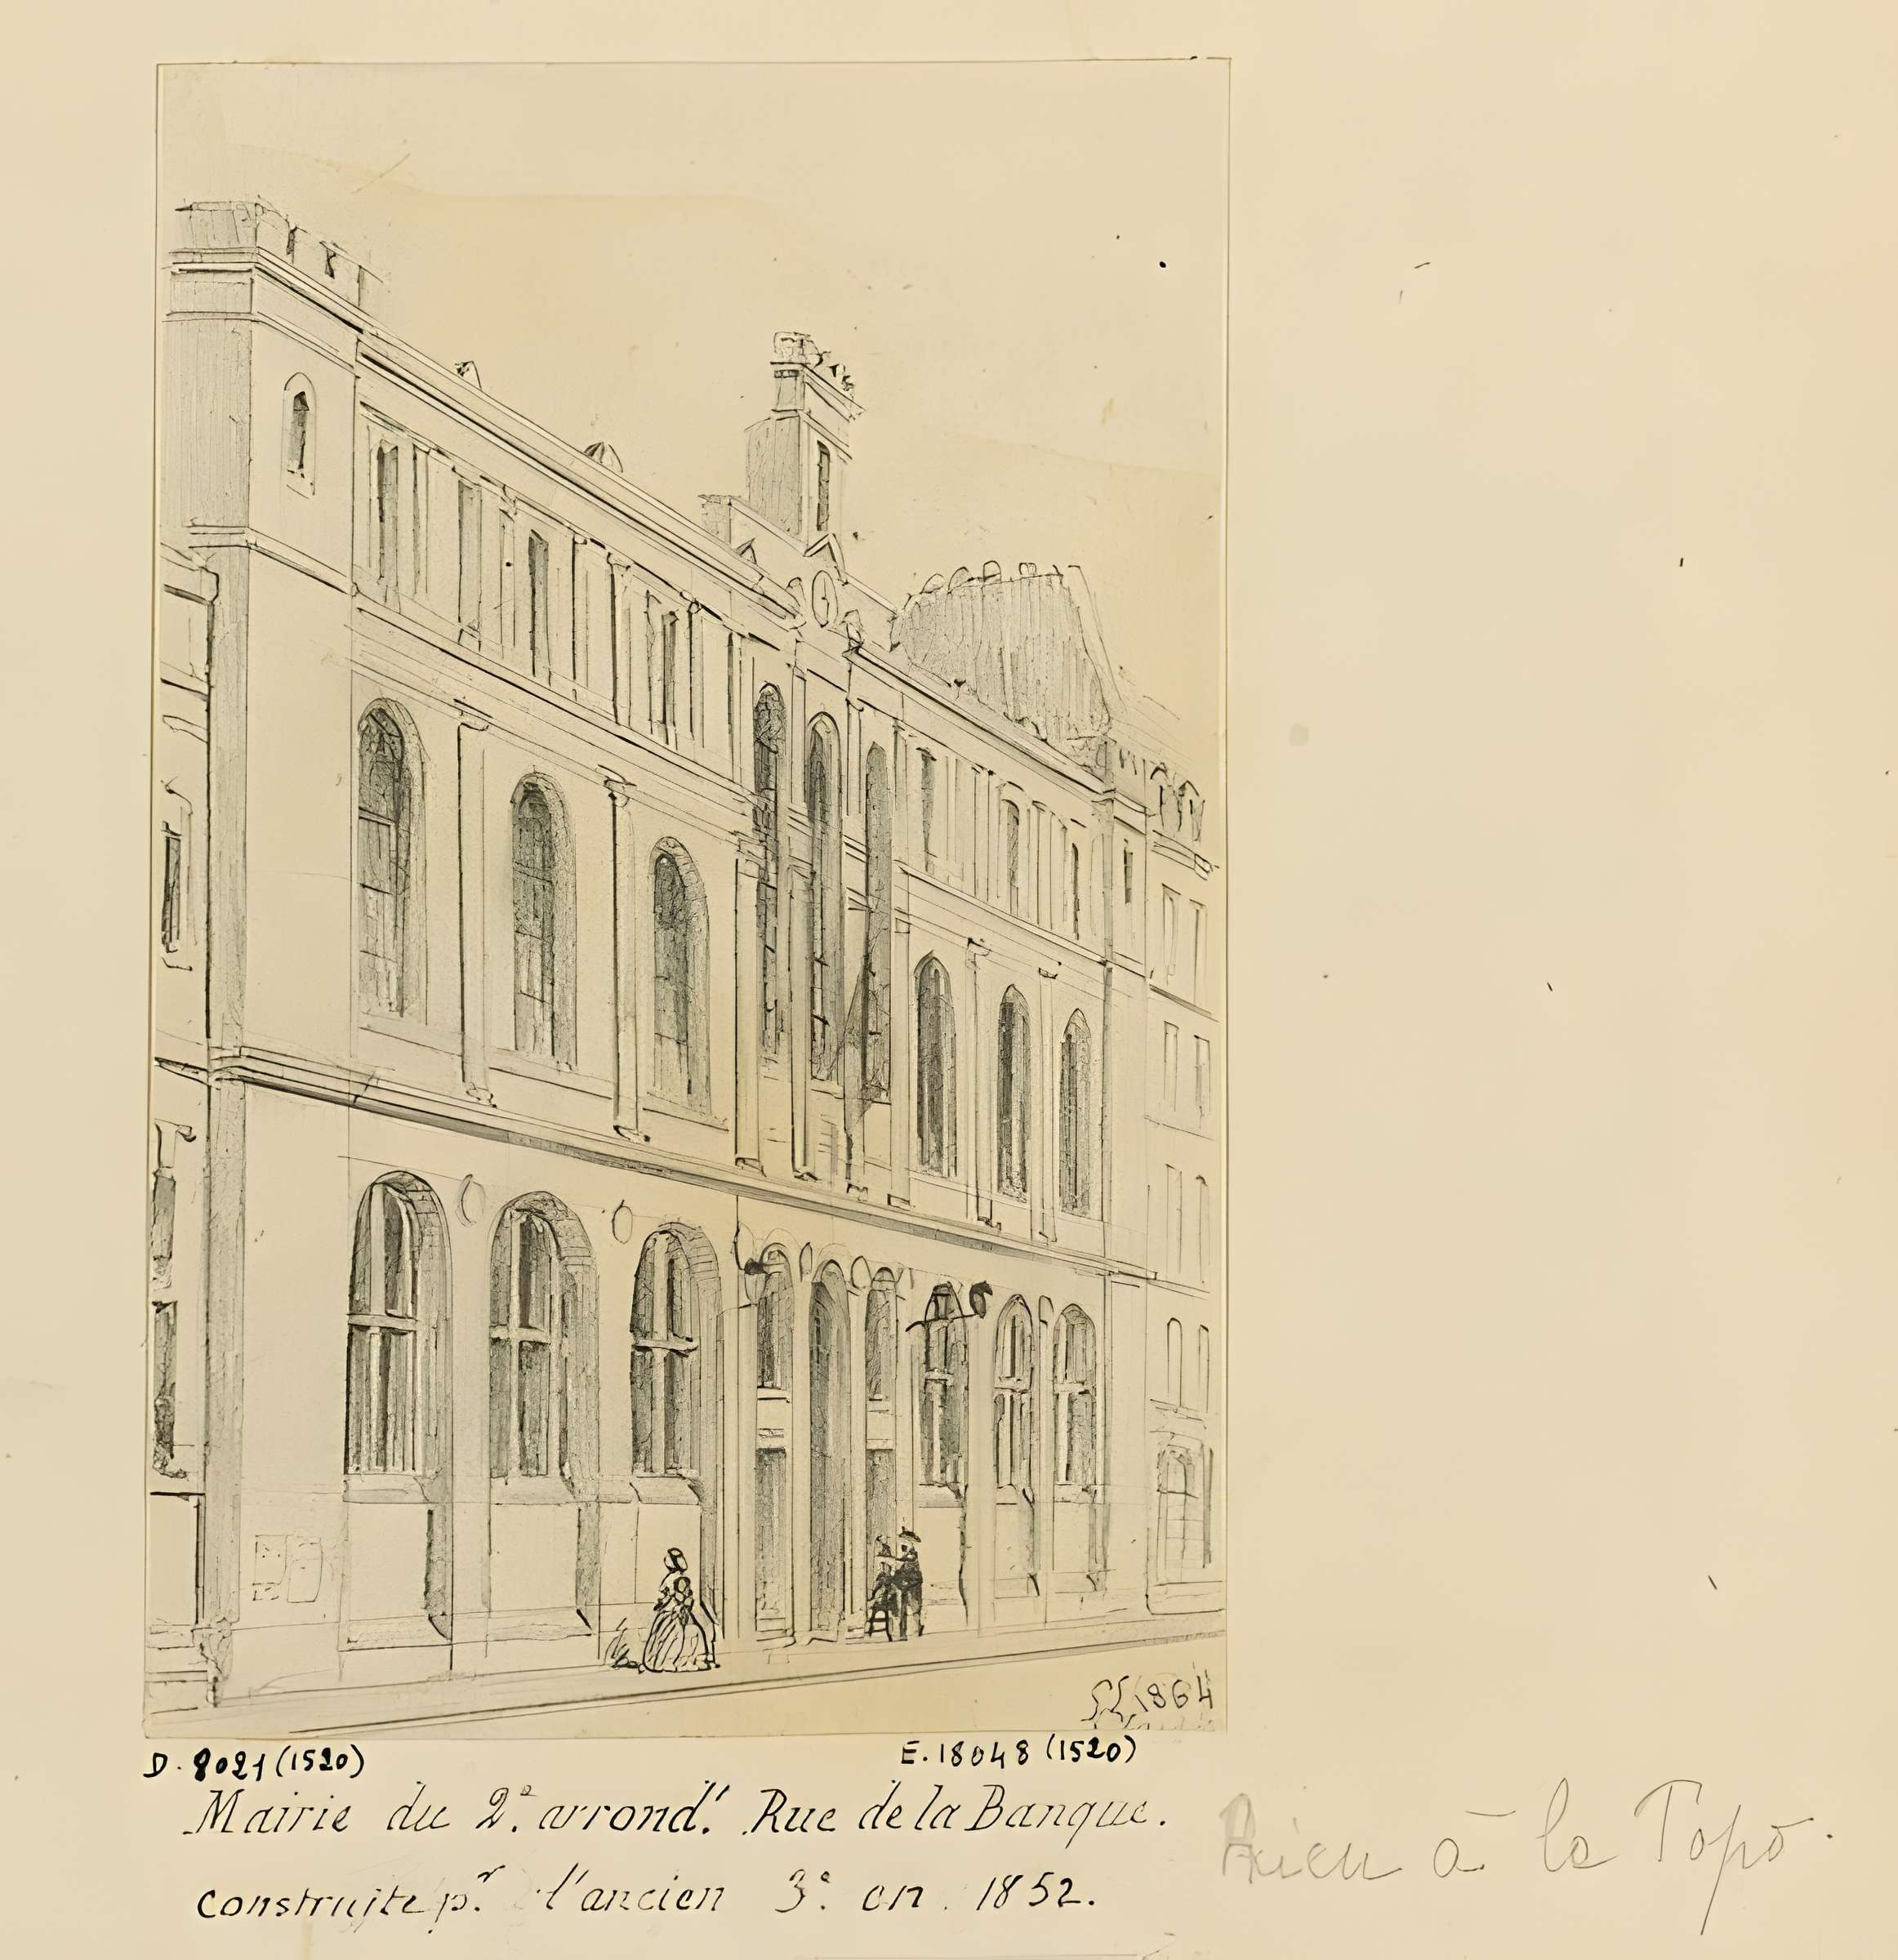 1864
D. 8021 (1520)
E. 18048 (1520)
Mairie du 2e. arrondt. Rue de la Banque.
construite pr. l'ancien 3e. en 1852.
Rien à la Topo.